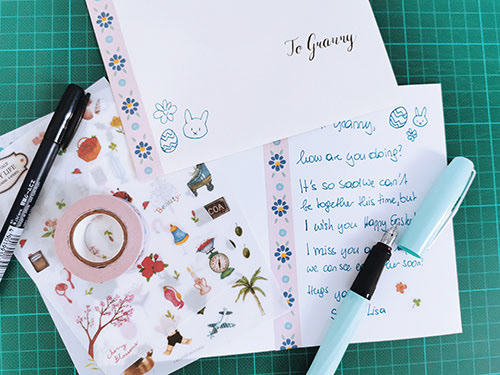 To Granny
Granny,
how are you doing?
It's so sad we can't
be together this time, but
I wish you Happy Easter!
I miss you a
we can see soon!
Hugs you
Lisa
Beauty
COA
LIFE
Cherry
Blossoms